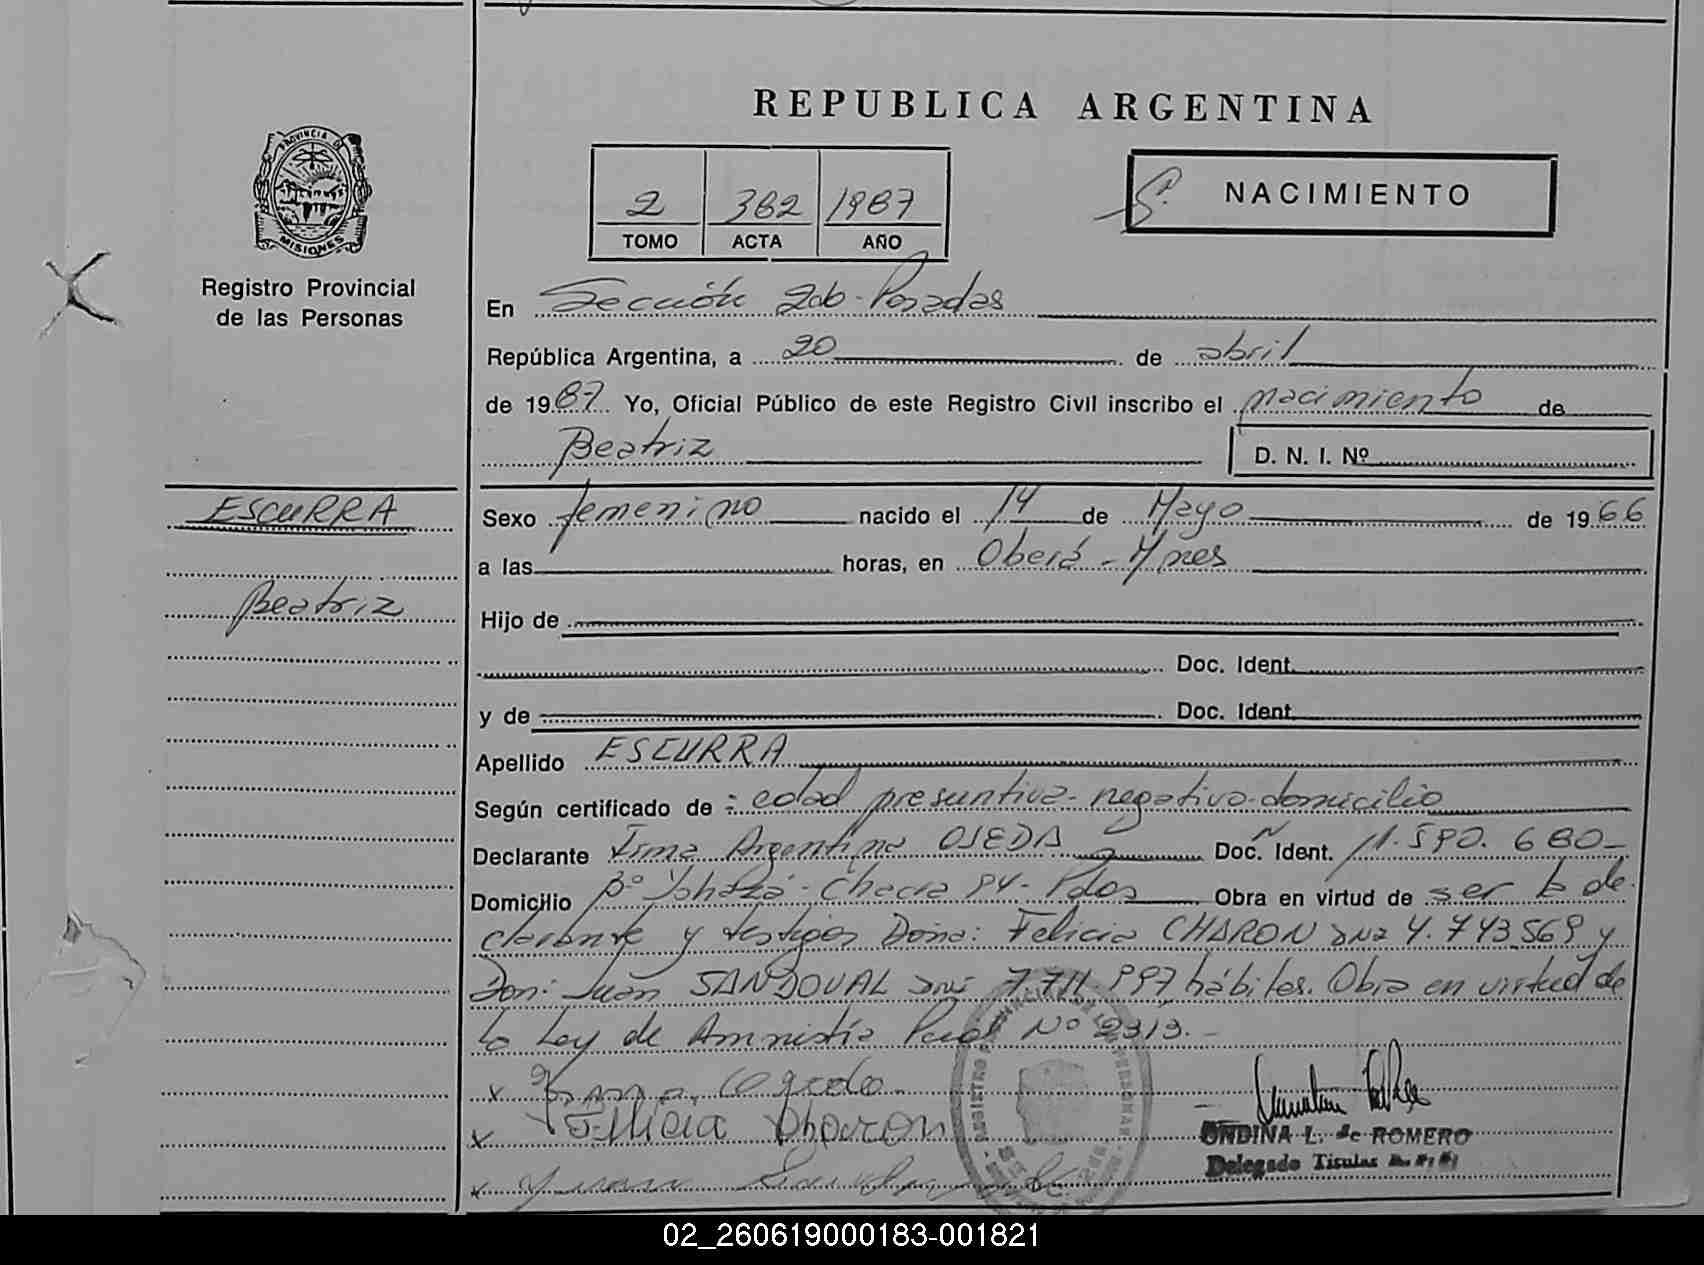 REPUBLICA ARGENTINA
PROVINCIA DE
MISIONES
Registro Provincial
de las Personas
2 382 1987
TOMO ACTA AÑO
NACIMIENTO
En Sección 2da - Posadas
República Argentina, a 20 de abril
de 1987 Yo, Oficial Público de este Registro Civil inscribo el nacimiento de
Beatriz
D. N. I. Nº
ESCURRA
Beatriz
Sexo femenino nacido el 14 de Mayo de 1966
a las horas, en Oberá - Mnes
Hijo de
Doc. Ident.
y de Doc. Ident.
Apellido ESCURRA
Según certificado de : edad presuntiva - negativo - domicilio
Declarante Irma Argentina OJEDA Doc. Ident. 11.590.680-
Domicilio Bº Chacra 94 - Pdas Obra en virtud de ser la de
clarante y testigos Doña: Felicia CHARON DNI 4.743.569 y
Don: Juan SANDOVAL DNI 7.711.997 hábiles. Obra en virtud de
la Ley de Amnistía Pcial Nº 2313.-
x Irma
x Felicia Charon
x Juan
ONDINA L. de ROMERO
Delegado Titular
02_260619000183-001821